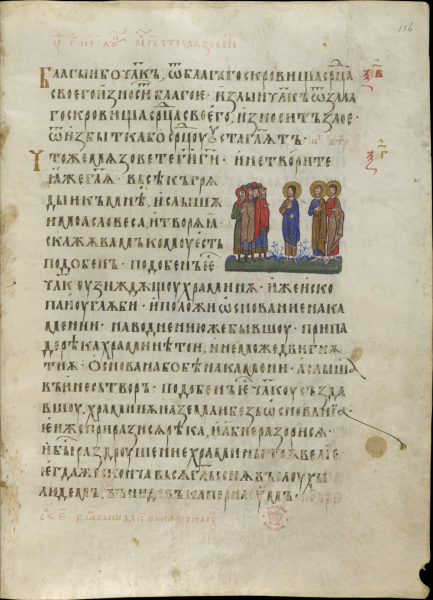 Благы҃и бо ч҃лкъ, ѿ благаго съкровища ср҃ца
своего и҆зноси благое· и҆ злыи ч҃лкъ ѿ зла
го съкровища ср҃ца своего, и҆зносит злое·
ѿ и҆збытка бо ср҃цоу ѹ҆ста гл҃ѧт·
Что же мѧ зовете ги҃ ги҃· и҆ не творите
ꙗ҆же гл҃ѧ· въсѣкъ грѧ
дыи къ мнѣ, и҆ слышѧ
и҆ моѧ словеса, и҆ творѧ ѧ҆·
скажѫ вамъ комоу е҆сть
подобенъ· подобенъ е҆
ч҃лкоу зиждѫщоу храминѫ· и҆же ископа
и҆ оуглѫби· и҆ положи ѡ҆снование на ка
мени· наводнению же бывшоу· припа
де рѣка храминѣ тои, и҆ не може двигнѫ
ти ѧ҆· ѡ҆снована бо бѣ на камени· а҆ слыша
въ и҆ не сътворъ· подобенъ е҆ ч҃лкоу създа
вшоу храминѫ на земли без ѡ҆снованиа·
е҆и же приразисѧ рѣка, и҆ а҆бие разорисѧ·
и҆ бы раздроушение храмины тоѫ велие·
е҆гда же сконча въсѧ гл҃ы сиѧ въ слоухы
людемъ, въниде въ капернаоумъ·
156